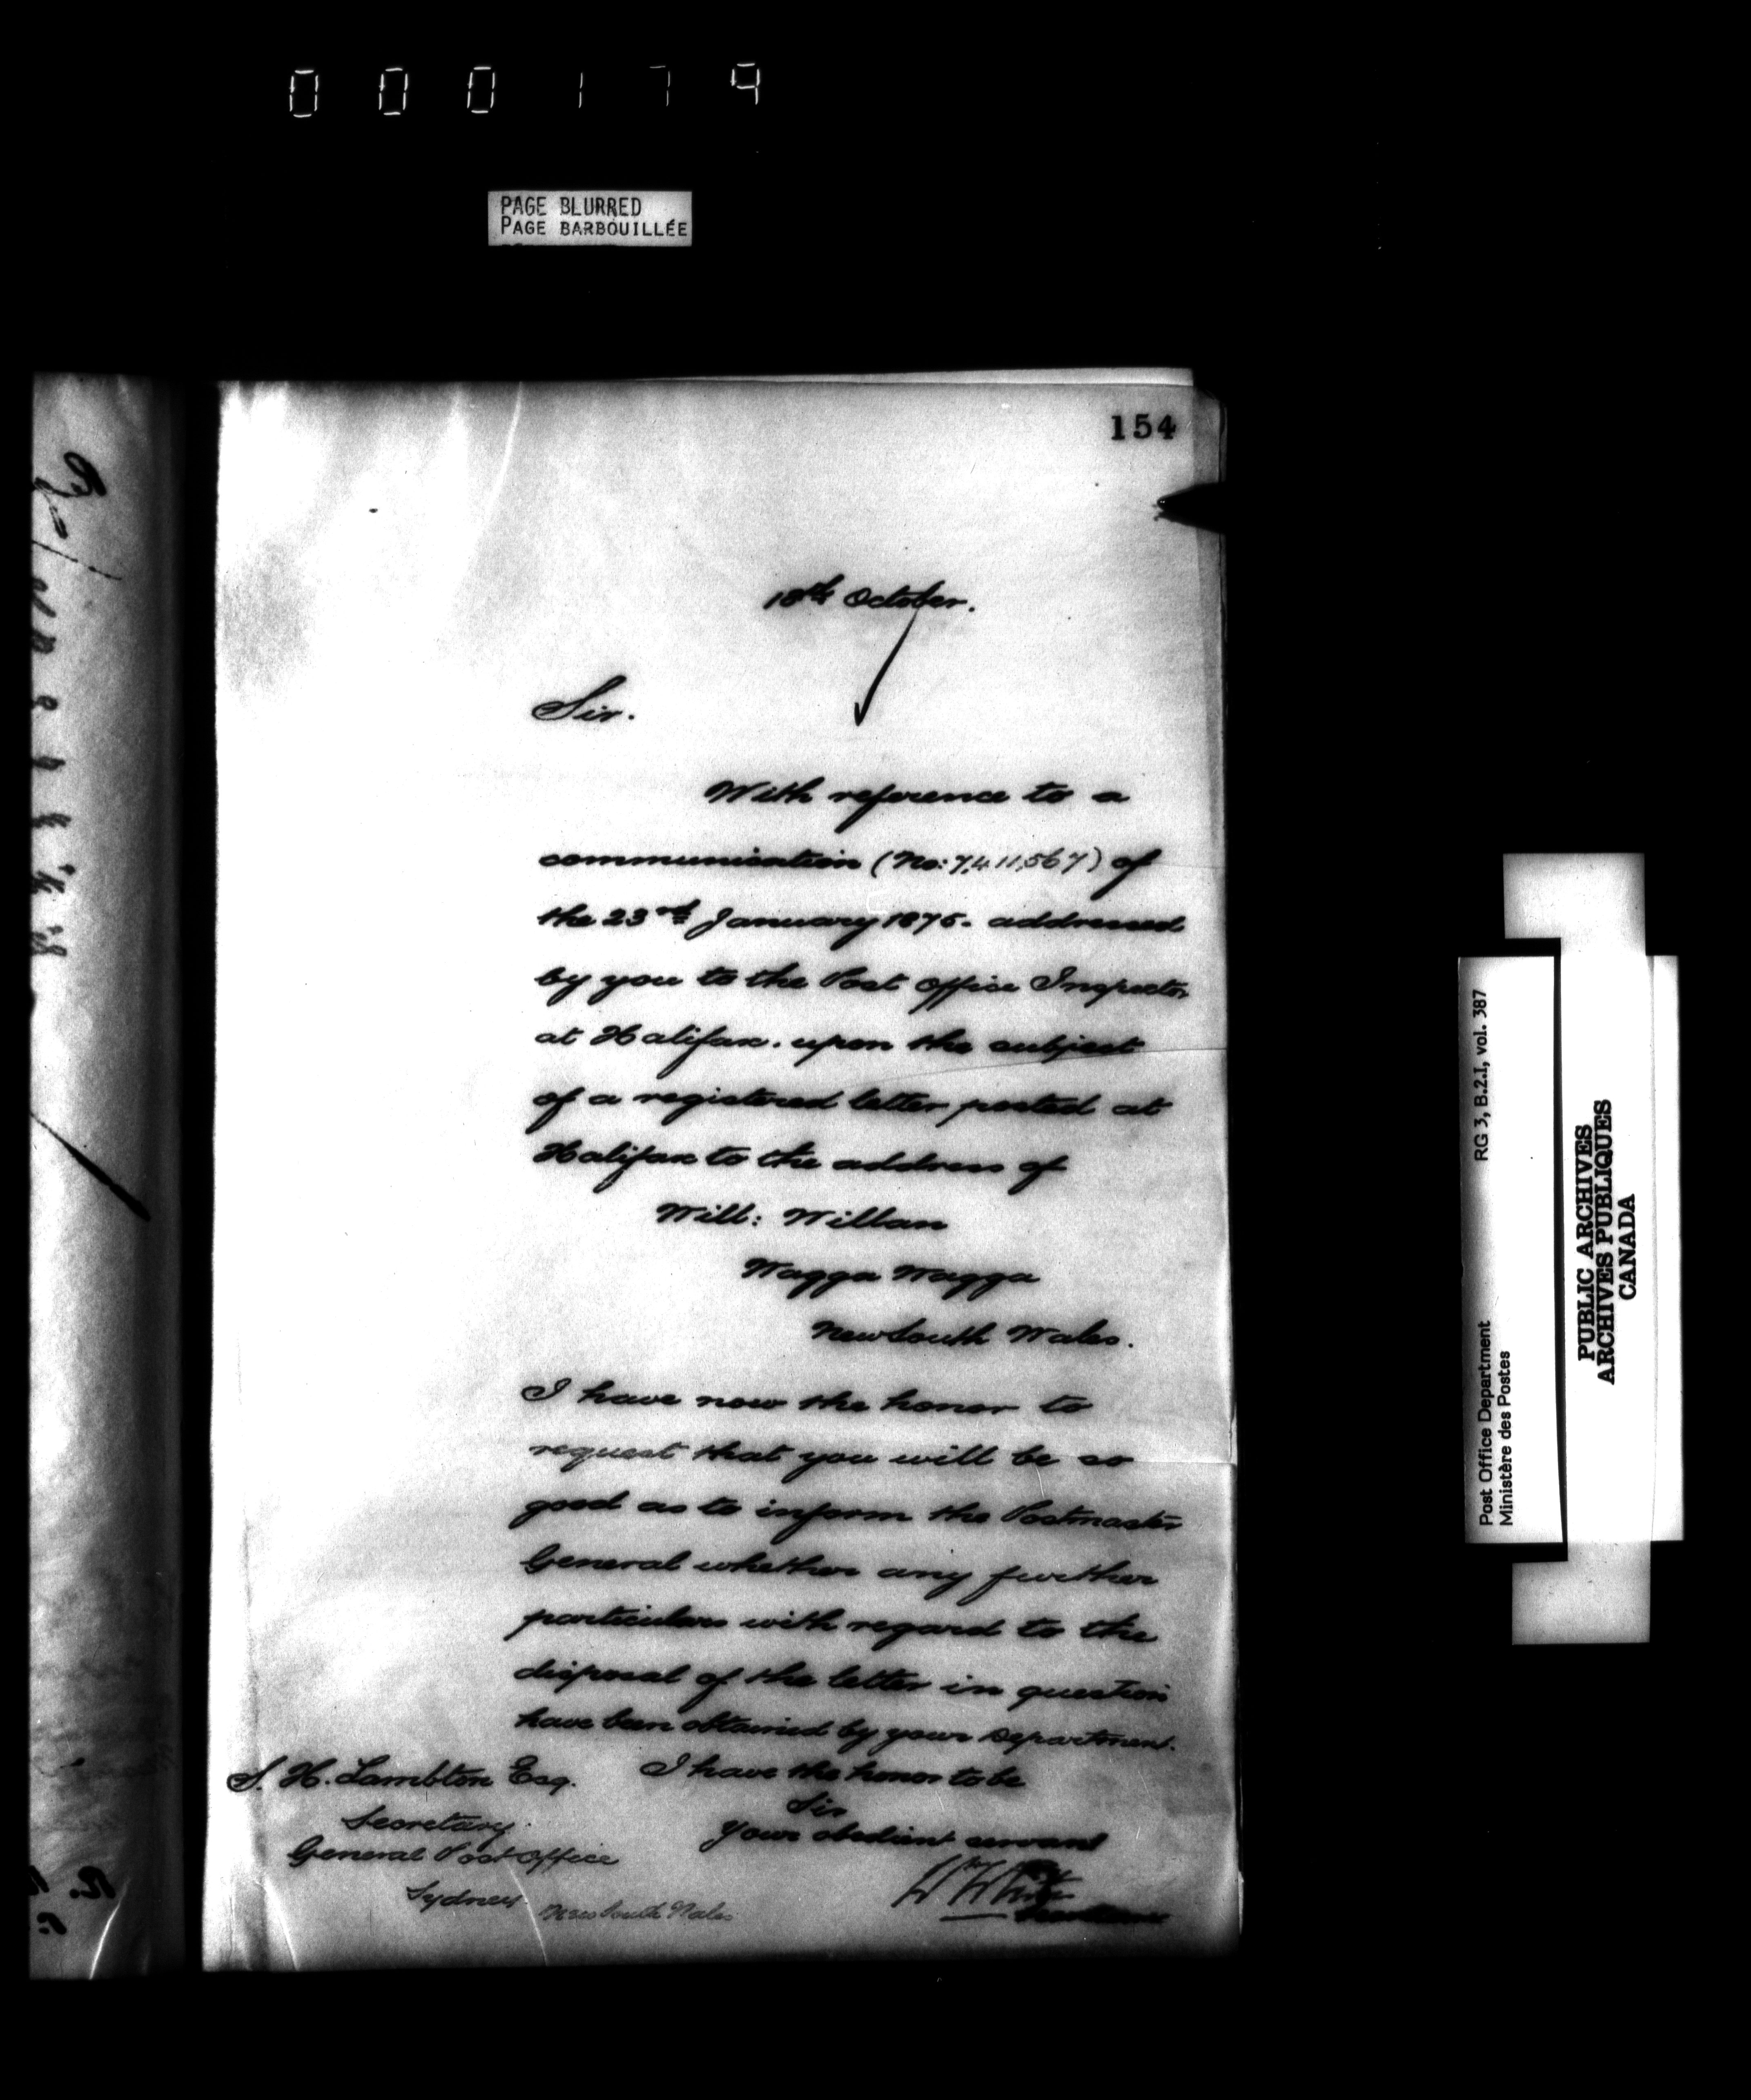 000179
PAGE BLURRED
PAGE BARBOUILLÉE
154
18th October.
Sir.
With reference to a
communication (No: 7,4.11,567) of
the 23rd January 1875. addressed
by you to the Post Office Inspector
at Halifax. upon the subject
of a registered letter posted at
Halifax to the address of
Will: Willan
Wagga Wagga
New South Wales.
I have now the honor to
request that you will be so
good as to inform the Postmaster
General whether any further
particulars with regard to the
disposal of the letter in question
have been obtained by your Department.
I have the honor to be
Sir
Your obedient servant
S. H. Lambton Esq.
Secretary.
General Post Office
Sydney.
New South Wales
RG 3, B.2.I, vol. 387
Post Office Department
Ministère des Postes
PUBLIC ARCHIVES
ARCHIVES PUBLIQUES
CANADA